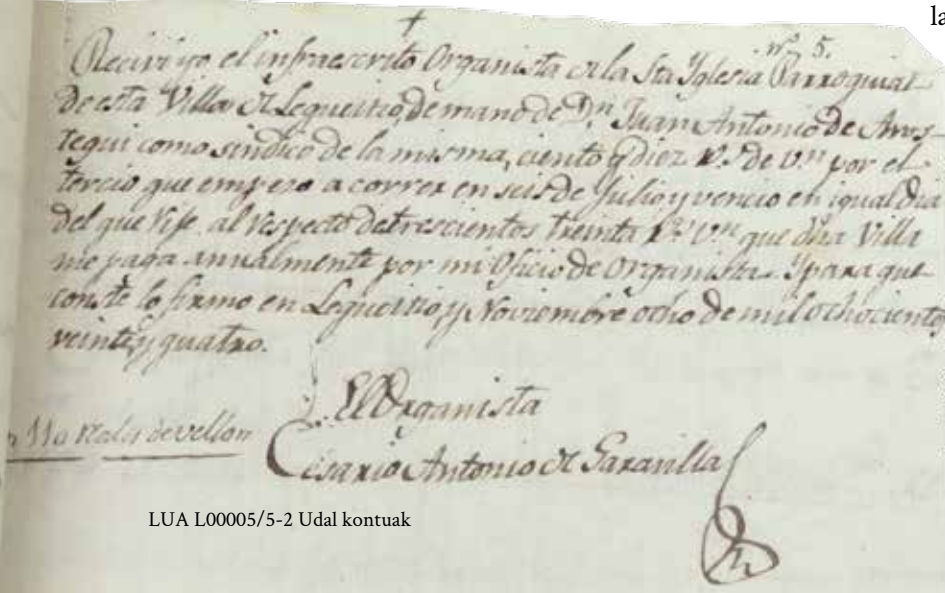 la
nº 5.
Recivi yo el infraescrito Organista de la Sta Yglesia Parroquial
de esta Villa de Lequeitio, de mano de Dn Juan Antonio de Aros-
tegui como sindico de la misma, ciento y diez Rs de Vn por el
tercio que empezo a correr en seis de Julio y vencio en igual dia
del que rije, al respecto de trescientos treinta Rs Vn que dha Villa
me paga annualmente por mi Oficio de Organista. Y para que
conste lo firmo en Lequeitio, y Noviembre ocho de mil ochocientos
veinte y quatro.
El Organista
110 reales de vellon
Cesario Antonio de Garavilla
LUA L00005/5-2 Udal kontuak